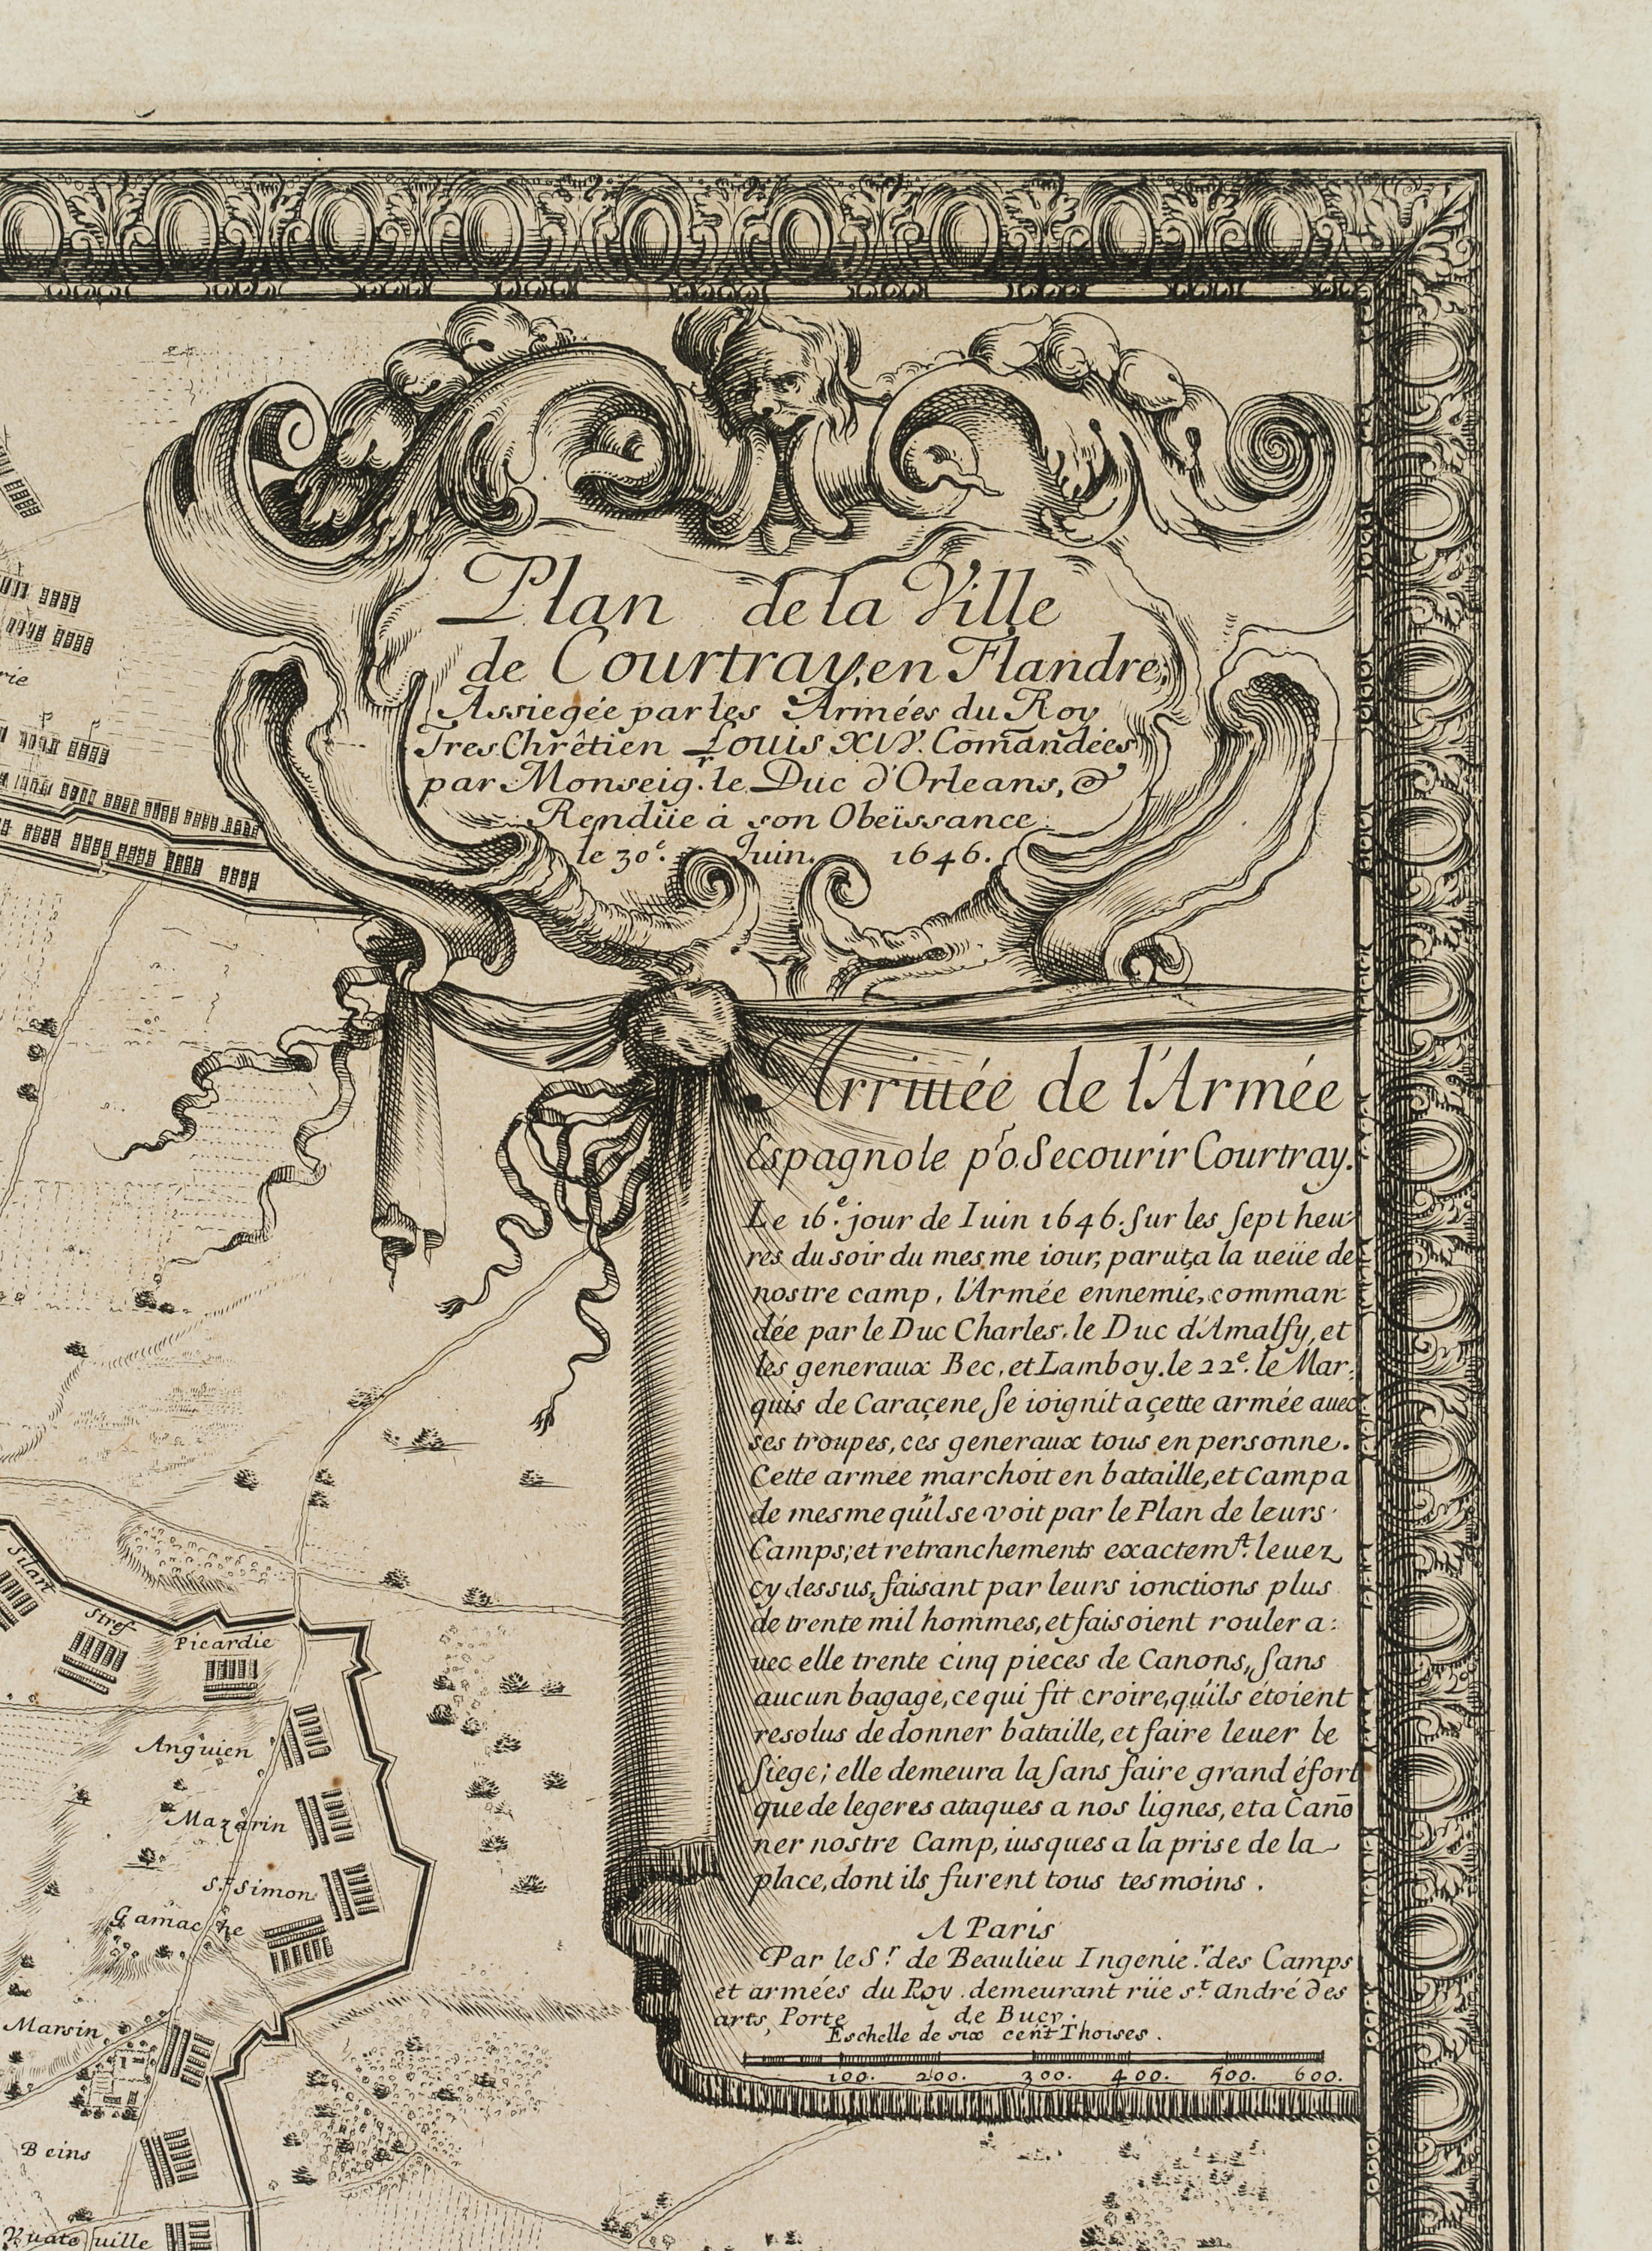 Plan de la Ville
de Courtray, en Flandre,
Assiegée par les Armées du Roy
Tres Chrêtien Louis XIV. Comandées
par Monseig.r le Duc d'Orleans, &
Rendüe à son Obeïssance
le 30e. Juin. 1646.
Arriuée de l'Armée
Espagnole po.r Secourir Courtray.
Le 16.e jour de Iuin 1646. sur les sept heu-
res du soir du mesme iour, parut a la ueüe de
nostre camp, l'Armée ennemie, comman-
dée par le Duc Charles, le Duc d'Amalfy, et
les generaux Bec, et Lamboy. le 22e. le Mar-
quis de Caraçene, se ioignit a çette armée auec
ses troupes, ces generaux tous en personne.
Cette armée marchoit en bataille, et Campa
de mesme qu'il se voit par le Plan de leurs
Camps; et retranchements exactem.t leuez
cy dessus, faisant par leurs ionctions plus
de trente mil hommes, et faisoient rouler a-
uec elle trente cinq pieces de Canons, sans
aucun bagage, ce qui fit croire, qu'ils étoient
resolus de donner bataille, et faire leuer le
siege; elle demeura la sans faire grand éfort
que de legeres ataques a nos lignes, et a Canō
ner nostre Camp, iusques a la prise de la
place, dont ils furent tous tesmoins.
A Paris
Par le S.r de Beaulieu Ingenie.r des Camps
et armées du Roy. demeurant rüe st. André des
arts, Porte de Bucy.
Eschelle de six cent Thoises.
100. 200. 300. 400. 500. 600.
rie
Silart
Stref
Picardie
Anguien
Mazarin
S.t Simon
Gamache
Marsin
Beins
uille